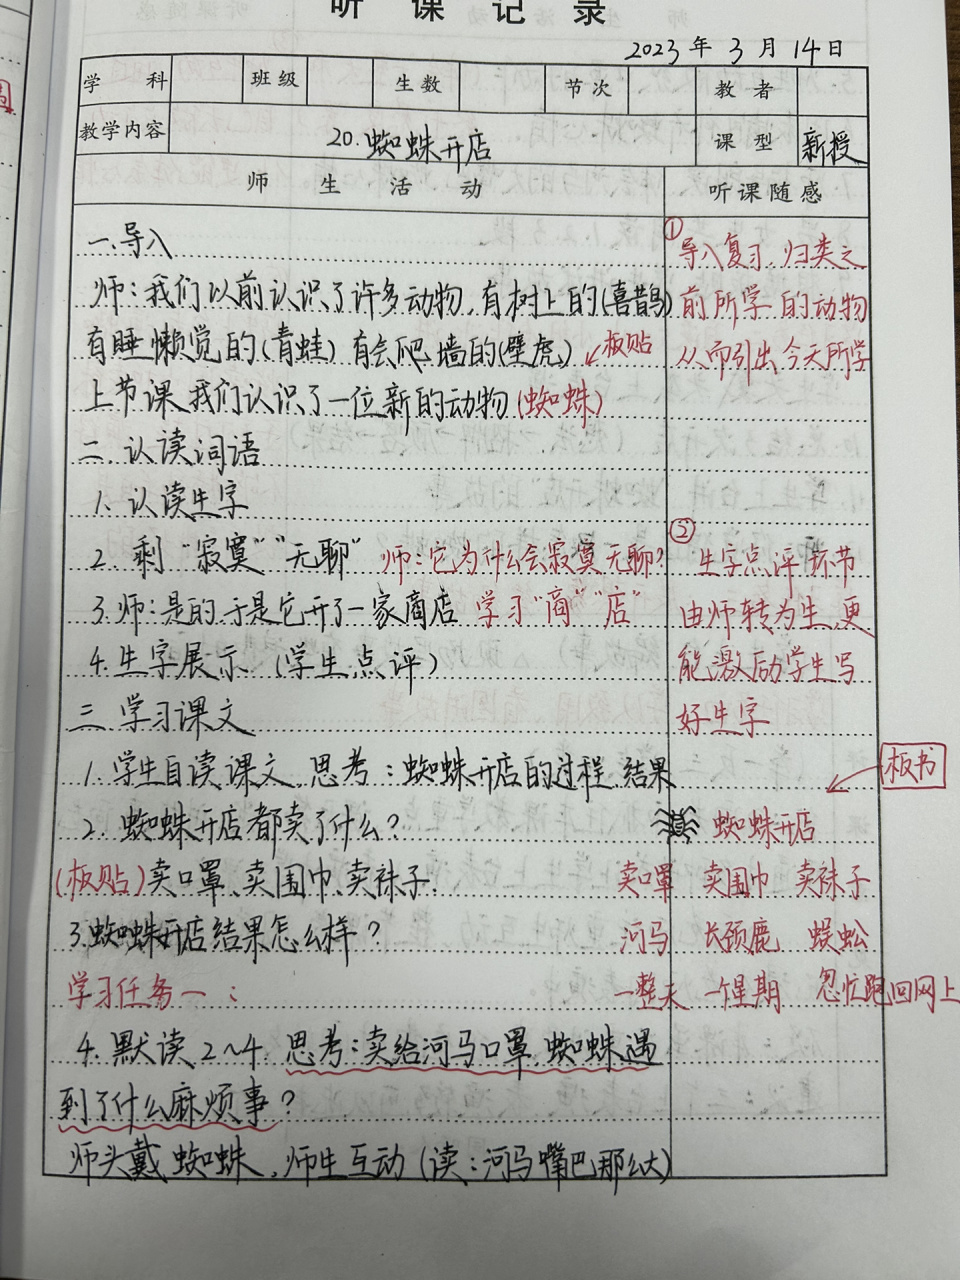 听课记录
2023年3月14日
学科 班级 生数 节次 教者
教学内容 20.蜘蛛开店 课型 新授
师生活动 听课随感
一.导入
师:我们以前认识了许多动物,有树上的(喜鹊)
有睡懒觉的(青蛙)有会爬墙的(壁虎) 板贴
上节课我们认识了一位新的动物(蜘蛛)
二.认读词语
1.认读生字
2.剩"寂寞""无聊" 师:它为什么会寂寞无聊?
3.师:是的,于是它开了一家商店 学习"商""店"
4.生字展示.(学生点评)
三.学习课文
1.学生自读课文,思考:蜘蛛开店的过程,结果
2.蜘蛛开店都卖了什么?
(板贴)卖口罩、卖围巾、卖袜子.
3.蜘蛛开店结果怎么样?
学习任务一:
4.默读2~4.思考:卖给河马口罩,蜘蛛遇
到了什么麻烦事?
师头戴蜘蛛,师生互动(读:河马嘴巴那么大)
①导入复习,归类之
前所学的动物
从而引出今天所学
②生字点评环节
由师转为生,更
能激励学生写
好生字
板书
蜘蛛开店
卖口罩 卖围巾 卖袜子
河马 长颈鹿 蜈蚣
一整天 一个星期 忽忙跑回网上